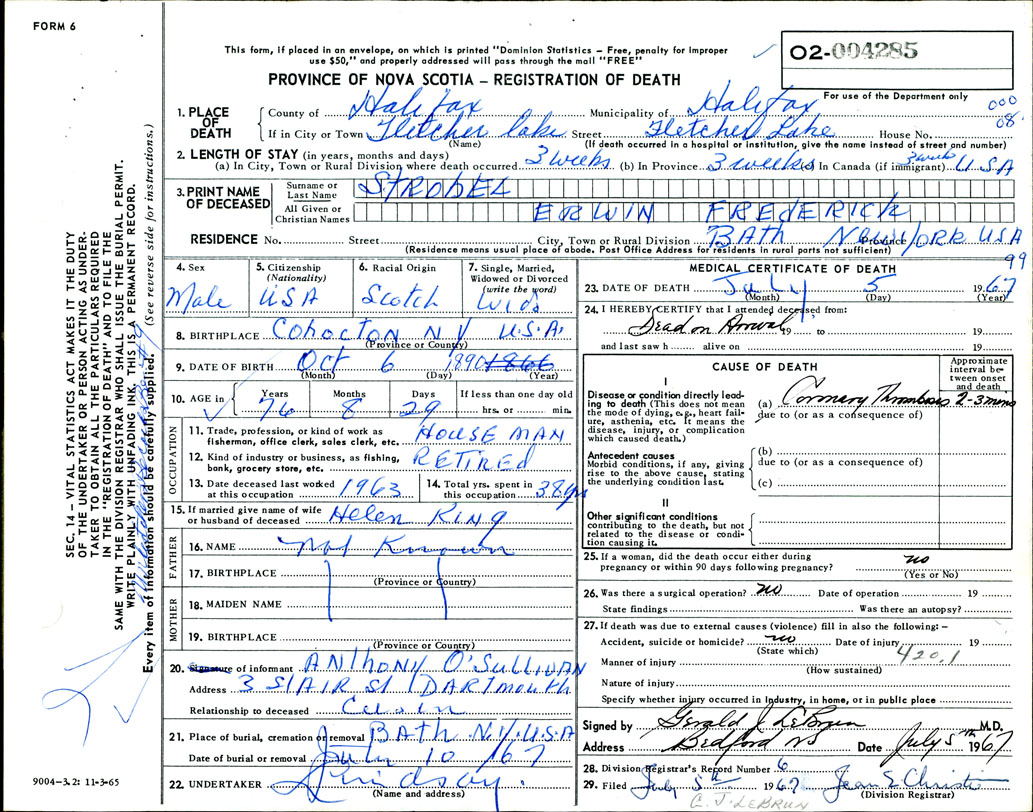 FORM 6
This form, if placed in an envelope, on which is printed "Dominion Statistics – Free, penalty for improper
use $50," and properly addressed will pass through the mail "FREE"
O2-004285
PROVINCE OF NOVA SCOTIA – REGISTRATION OF DEATH
For use of the Department only
000
08
1. PLACE OF DEATH
County of Halifax Municipality of Halifax
If in City or Town Fletcher lake Street Fletcher Lake House No.
(Name) (If death occurred in a hospital or institution, give the name instead of street and number)
2. LENGTH OF STAY (in years, months and days)
(a) In City, Town or Rural Division where death occurred 3 weeks (b) In Province 3 weeks (c) In Canada (if immigrant) 3 weeks USA
3. PRINT NAME OF DECEASED
Surname or Last Name STROBEL
All Given or Christian Names ERWIN FREDERICK
RESIDENCE No. Street City, Town or Rural Division BATH Province NEW YORK USA
(Residence means usual place of abode. Post Office Address for residents in rural parts not sufficient)
99
4. Sex Male
5. Citizenship (Nationality) USA
6. Racial Origin Scotch
7. Single, Married, Widowed or Divorced (write the word) Wid.
8. BIRTHPLACE COHOCTON N.Y U.S.A.
(Province or Country)
9. DATE OF BIRTH Oct 6 1890 1866
(Month) (Day) (Year)
10. AGE in Years Months Days If less than one day old
76 8 29 hrs. or min.
OCCUPATION
11. Trade, profession, or kind of work as fisherman, office clerk, sales clerk, etc. HOUSE MAN
12. Kind of industry or business, as fishing, bank, grocery store, etc. RETIRED
13. Date deceased last worked at this occupation 1963
14. Total yrs. spent in this occupation 38 yrs
15. If married give name of wife or husband of deceased Helen KING
FATHER
16. NAME Not Known
17. BIRTHPLACE
(Province or Country)
MOTHER
18. MAIDEN NAME
19. BIRTHPLACE
(Province or Country)
20. Signature of informant ANTHONY O'SULLIVAN
Address 3 STAIR St DARTMOUTH
Relationship to deceased Cusin
21. Place of burial, cremation or removal BATH N.Y. U.S.A
Date of burial or removal July 10 /67
22. UNDERTAKER Lindsay.
(Name and address)
MEDICAL CERTIFICATE OF DEATH
23. DATE OF DEATH July 5 1967
(Month) (Day) (Year)
24. I HEREBY CERTIFY that I attended deceased from:
Dead on Arrival 19 to 19
and last saw h alive on 19
CAUSE OF DEATH
Approximate interval between onset and death
I
Disease or condition directly leading to death (This does not mean the mode of dying, e.g., heart failure, asthenia, etc. It means the disease, injury, or complication which caused death.)
(a) Coronary Thrombosis 2-3 mins
due to (or as a consequence of)
Antecedent causes
Morbid conditions, if any, giving rise to the above cause, stating the underlying condition last.
(b)
due to (or as a consequence of)
(c)
II
Other significant conditions
contributing to the death, but not related to the disease or condition causing it.
25. If a woman, did the death occur either during pregnancy or within 90 days following pregnancy? no
(Yes or No)
26. Was there a surgical operation? no Date of operation 19
State findings Was there an autopsy?
27. If death was due to external causes (violence) fill in also the following: –
Accident, suicide or homicide? no Date of injury 19
(State which)
420.1
Manner of injury
(How sustained)
Nature of injury
Specify whether injury occurred in Industry, in home, or in public place
Signed by Gerald J. LeBrun M.D.
Address Bedford NS Date July 5th 1967
28. Division Registrar's Record Number 6
29. Filed July 5th 1967 Jean E Christie
(Division Registrar)
G. J. LEBRUN
9004-3.2: 11-3-65
SEC. 14 – VITAL STATISTICS ACT MAKES IT THE DUTY
OF THE UNDERTAKER OR PERSON ACTING AS UNDER-
TAKER TO OBTAIN ALL THE PARTICULARS REQUIRED
IN THE "REGISTRATION OF DEATH" AND TO FILE THE
SAME WITH THE DIVISION REGISTRAR WHO SHALL ISSUE THE BURIAL PERMIT.
WRITE PLAINLY WITH UNFADING INK, THIS IS A PERMANENT RECORD.
Every item of information should be carefully supplied. (See reverse side for instructions.)